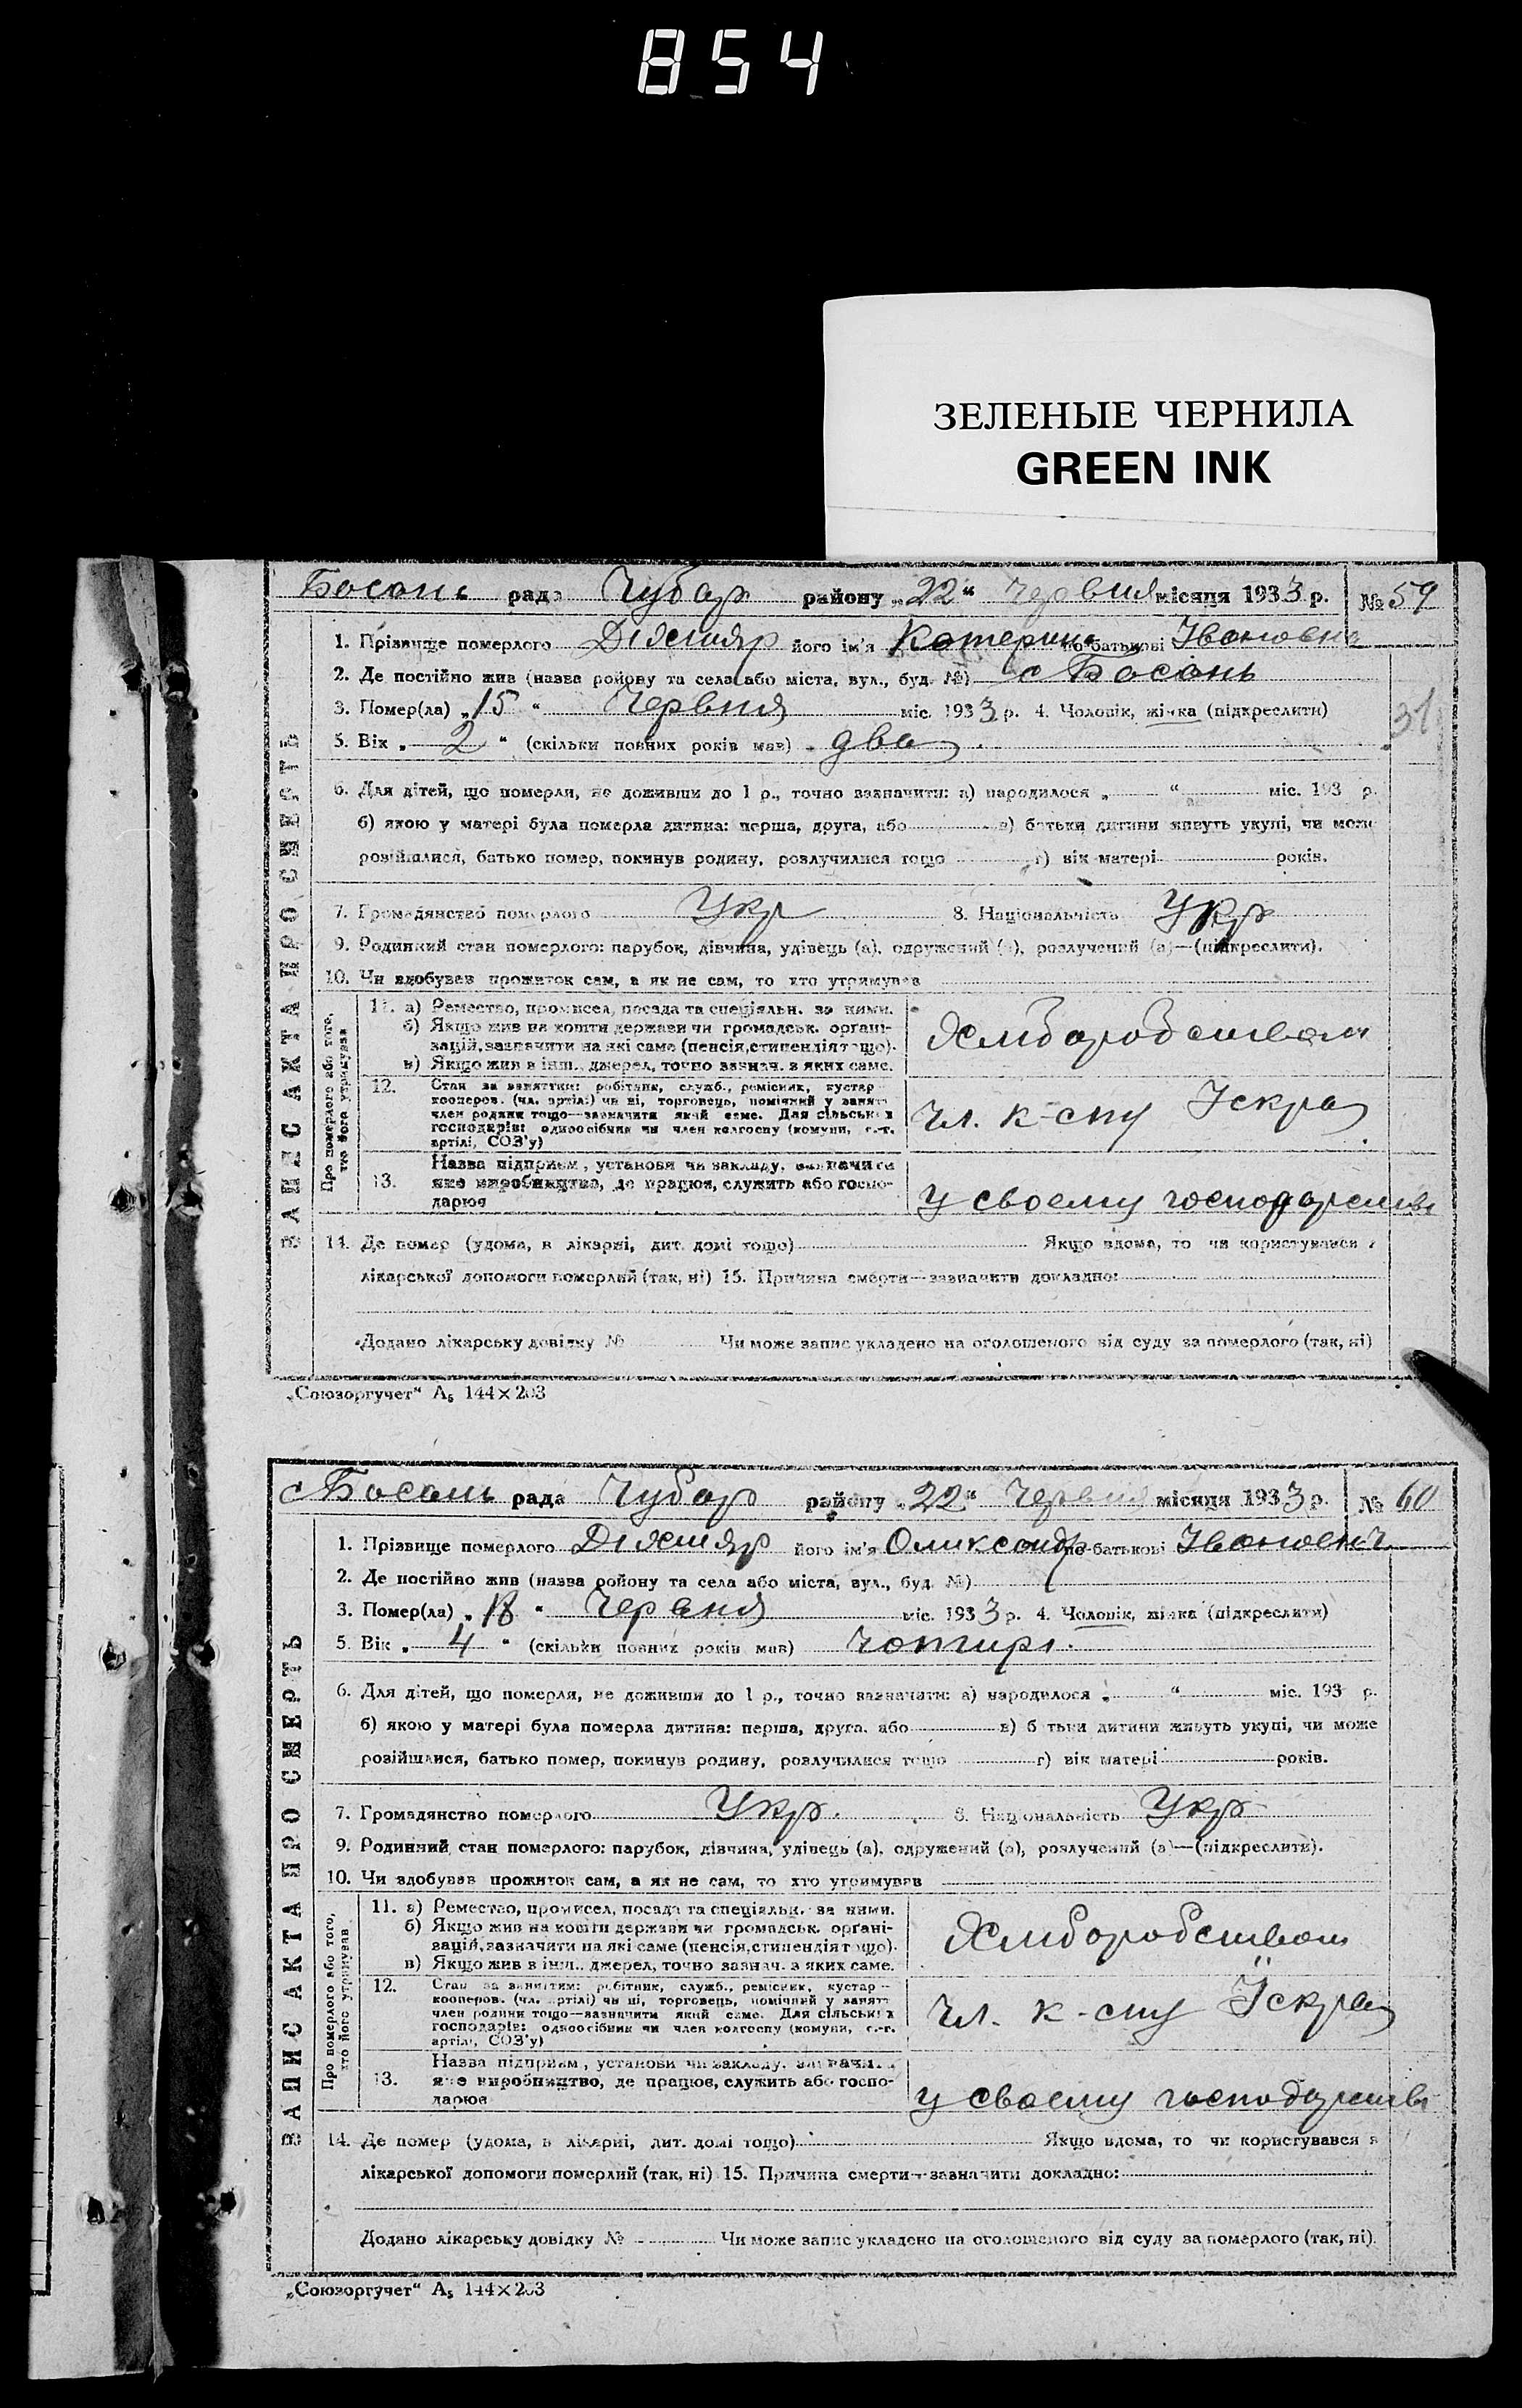 854
ЗЕЛЕНЫЕ ЧЕРНИЛА
GREEN INK
Босань рада Чубар району „22“ Червня місяця 1933 р. № 59
1. Прізвище померлого Діхтяр його ім'я Катерина по-батькові Івановна
2. Де постійно жив (назва району та села або міста, вул., буд. №) с Босань
3. Помер(ла) „15“ Червня міс. 1933 р. 4. Чоловік, жінка (підкреслити)
31
5. Вік „2“ (скільки повних років мав) два
6. Для дітей, що померли, не доживши до 1 р., точно зазначити: а) народилося „ “ міс. 193 р.
б) якою у матері була померла дитина: перша, друга, або в) батьки дитини живуть укупі, чи може
розійшлися, батько помер, покинув родину, розлучилися тощо г) вік матері років.
7. Громадянство померлого Укр 8. Національність Укр
9. Родинний стан померлого: парубок, дівчина, удівець (а), одружений (а), розлучений (а)—(підкреслити).
10. Чи здобував прожиток сам, а як не сам, то хто утримував
ЗАПИС АКТА ПРО СМЕРТЬ
Про померлого або того,
хто його утримував
11. а) Ремество, промисел, посада та спеціяльн. за ними.
б) Якщо жив на кошти держави чи громадськ. органі-
зацій, зазначити на які саме (пенсія, стипендія тощо).
в) Якщо жив в інш. джерел, точно зазнач. з яких саме.
Хліборобством
12. Стан за заняттям: робітник, служб., ремісник, кустар
кооперов. (чл. артілі) чи ні, торговець, помічний у занятт
член родини тощо—зазначити який саме. Для сільських
господарів: одноосібник чи член колгоспу (комуни, с.-г.
артілі, СОЗ'у)
чл. к-спу Іскра
13. Назва підприєм., установи чи закладу, зазначити
яке виробництво, де працює, служить або госпо-
дарює
у своему господарстві
14. Де помер (удома, в лікарні, дит. домі тощо) Якщо вдома, то чи користувався з
лікарської допомоги померлий (так, ні) 15. Причина смерти—зазначити докладно:
Додано лікарську довідку № Чи може запис укладено на оголошеного від суду за померлого (так, ні)
„Союзоргучет“ А₅ 144×203
с Босань рада Чубар району „22“ Червня місяця 1933 р. № 60
1. Прізвище померлого Діхтяр його ім'я Олександр по-батькові Іванович
2. Де постійно жив (назва району та села або міста, вул., буд. №)
3. Помер(ла) „18“ Червня міс. 1933 р. 4. Чоловік, жінка (підкреслити)
5. Вік „4“ (скільки повних років мав) чотирі
6. Для дітей, що померли, не доживши до 1 р., точно зазначити: а) народилося „ “ міс. 193 р.
б) якою у матері була померла дитина: перша, друга, або в) батьки дитини живуть укупі, чи може
розійшлися, батько помер, покинув родину, розлучилися тощо г) вік матері років.
7. Громадянство померлого Укр. 8. Національність Укр
9. Родинний стан померлого: парубок, дівчина, удівець (а), одружений (а), розлучений (а)—(підкреслити).
10. Чи здобував прожиток сам, а як не сам, то хто утримував
ЗАПИС АКТА ПРО СМЕРТЬ
Про померлого або того,
хто його утримував
11. а) Ремество, промисел, посада та спеціяльн. за ними.
б) Якщо жив на кошти держави чи громадськ. органі-
зацій, зазначити на які саме (пенсія, стипендія тощо).
в) Якщо жив в інш. джерел, точно зазнач. з яких саме.
Хліборобством
12. Стан за заняттям: робітник, служб., ремісник, кустар—
кооперов. (чл. артілі) чи ні, торговець, помічний у занятт
член родини тощо—зазначити який саме. Для сільських
господарів: одноосібник чи член колгоспу (комуни, с.-г.
артілі, СОЗ'у)
чл. к-спу Їскра
13. Назва підприєм., установи чи закладу, зазначити
яке виробництво, де працює, служить або госпо-
дарює
у своему господарстві
14. Де помер (удома, в лікарні, дит. домі тощо) Якщо вдома, то чи користувався з
лікарської допомоги померлий (так, ні) 15. Причина смерти—зазначити докладно:
Додано лікарську довідку № Чи може запис укладено на оголошеного від суду за померлого (так, ні).
„Союзоргучет“ А₅ 144×203